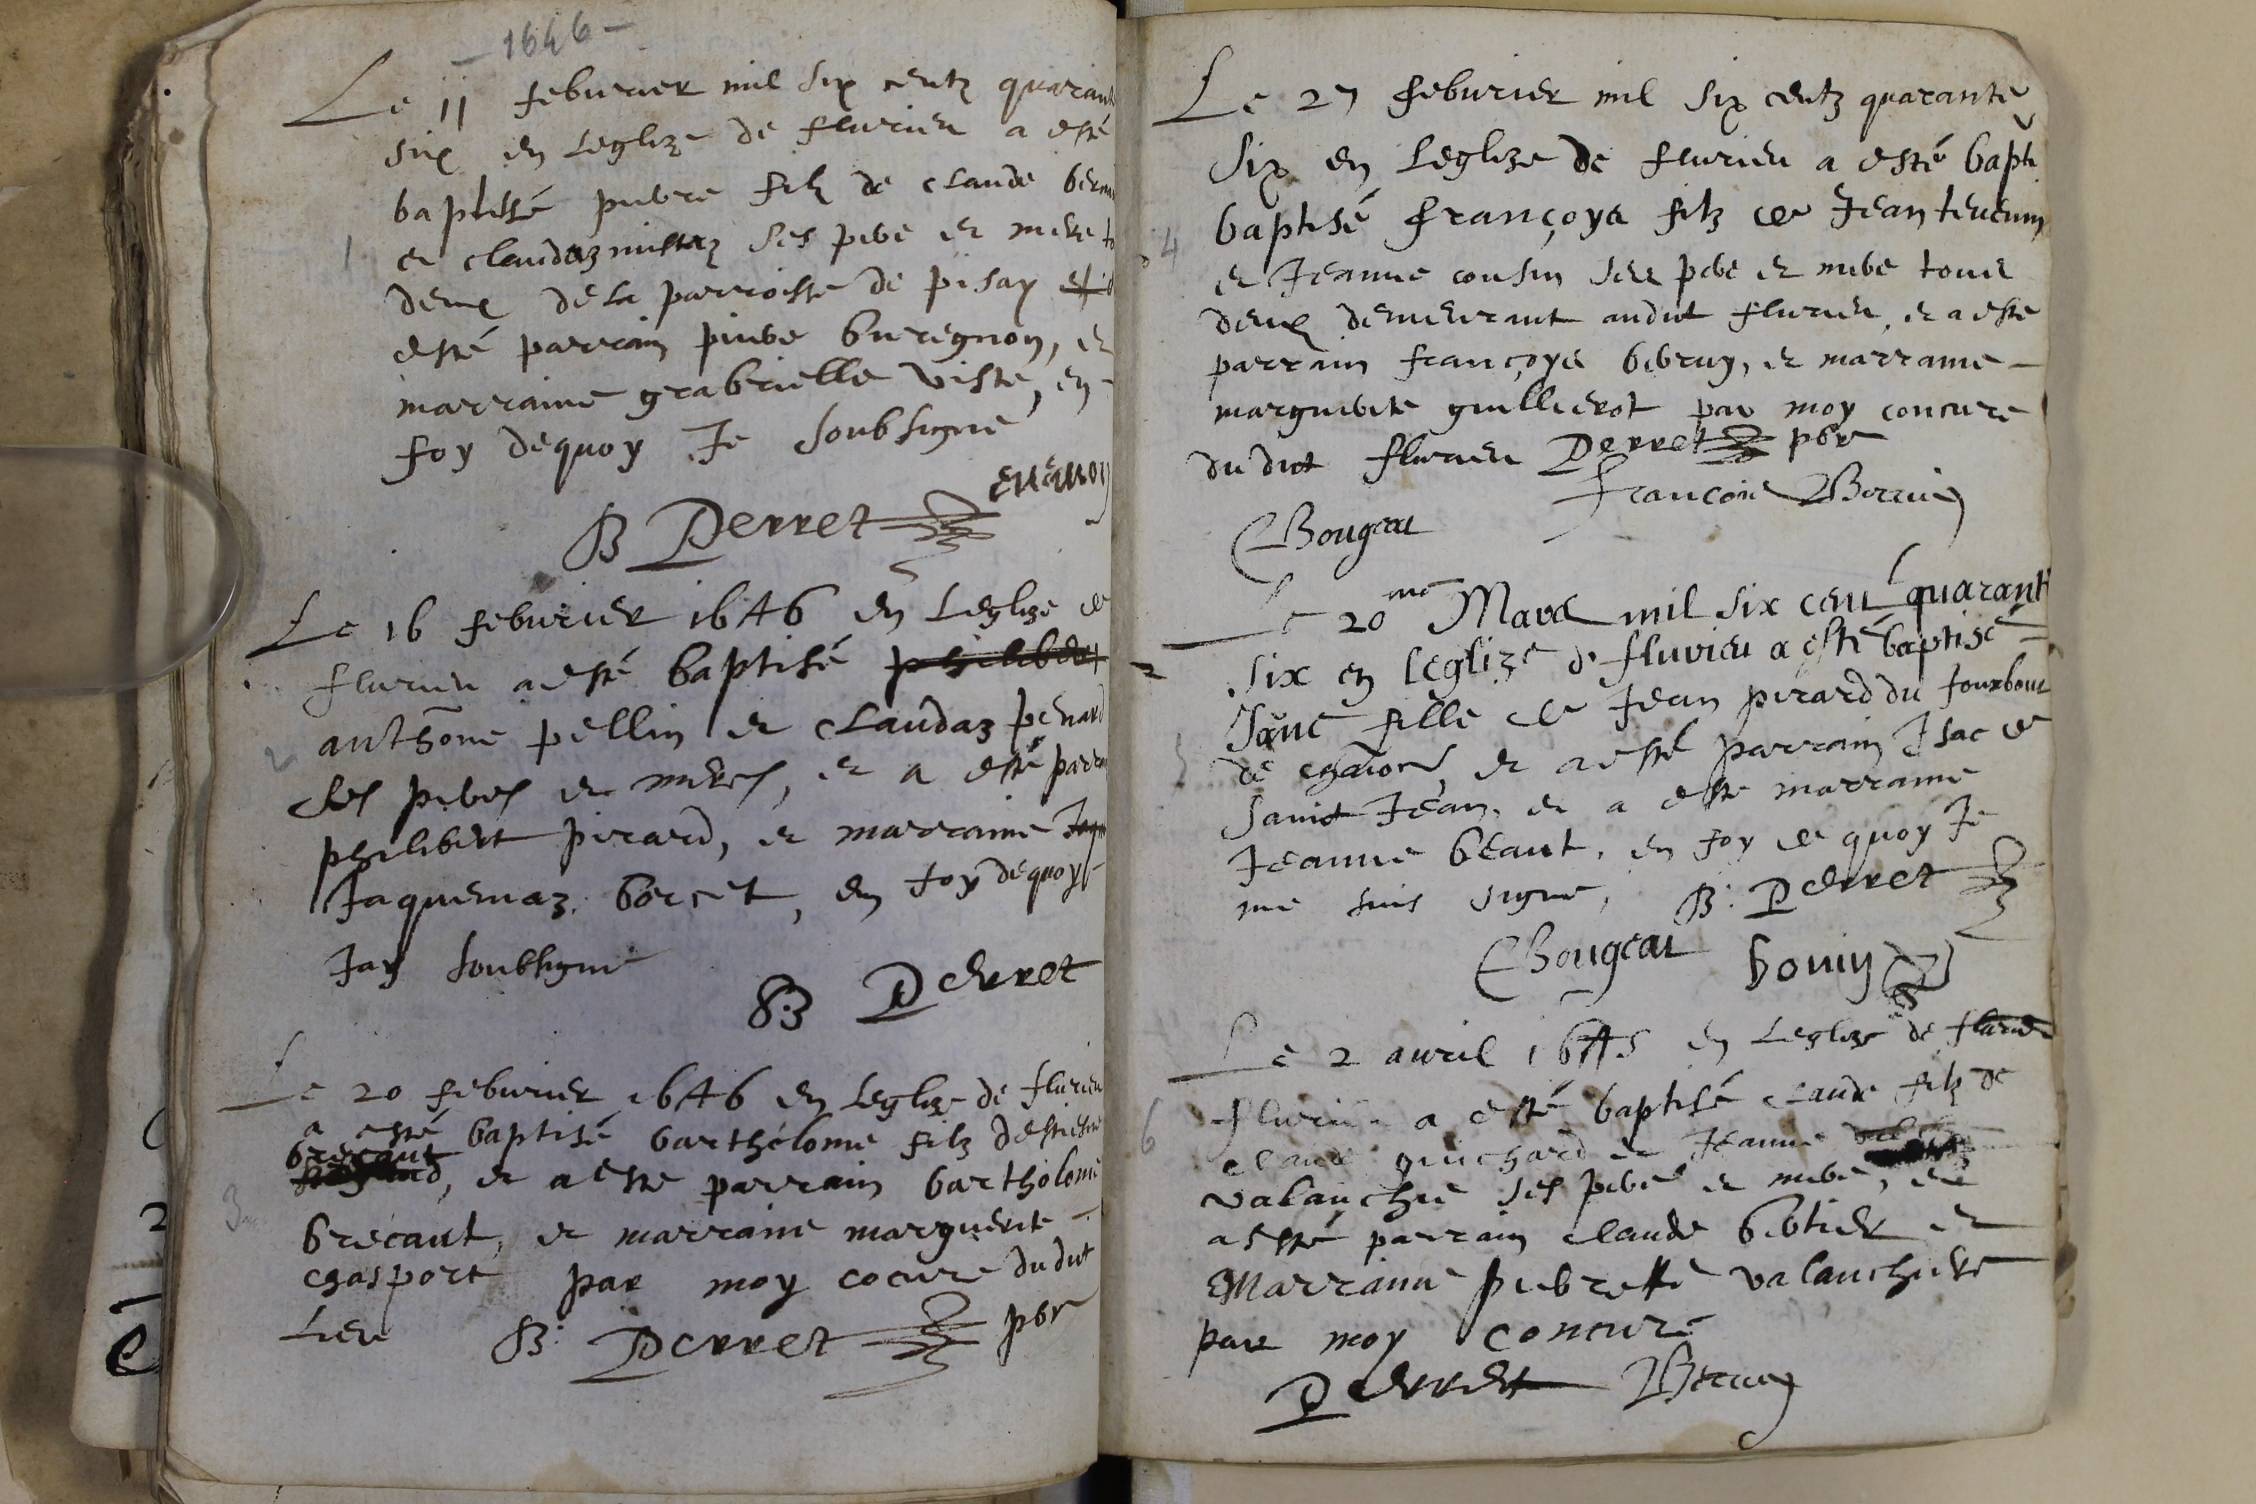 - 1646 -
Le 11 feburier mil six centz quarant
six en Leglize de flurieu a esté
baptisé pierre filz de claude
1
et claudaz ses pere et mere
deux de la parroisse de pisay
esté parrain pierre buregnon, et
marraine grabrielle viste, en
foy dequoy Je soubsigne
B Perret
Le 16 feburier 1646 en Leglize de
flurieu a esté baptisé philibert
anthoine pellin et claudaz penard
2
ses peres et meres, et a esté parra
philibert pirard, et marraine
Jaquemaz borcet, en foy dequoy
Jay soubsigne
B Perret
Le 20 feburier 1646 en Leglize de flurieu
a esté baptisé barthelome filz
brecaut
et a este parrain bartholome
3
brecaut, et marraine marguerite
chasport par moy cocure dudit
Lieu B: Perret pbr
Le 27 feburier mil six centz quarante
six en Leglize de flurieu a esté bapti
baptisé françoys filz de Jean
4
et Jeanne cousin ses pere et mere tous
deux demeurant audit flurieu, et a este
parrain françoys berruy, et marraine
marguerite guillierot par moy concure
dudit flurieu Perret pbr
francois Berruy
Bougeat
Le 20me Mars mil six cent quarant
six en leglize de flurieu a esté baptisé
fille de Jean pirard du fourbour
5
de et a esté parrain Isac de
sainct Jean, et a este marraine
Jeanne beaut, en foy de quoy Je
me suis signe, B: Perret
Bougeat bouiy
Le 2 avril en Leglize de
6
flurieu a esté baptisé claude filz de
claude guichard et Jeanne
valanchie ses pere et mere, et
a esté parrain claude et
Marraine pierrette valanchiere
par moy concure
Perret Berruy